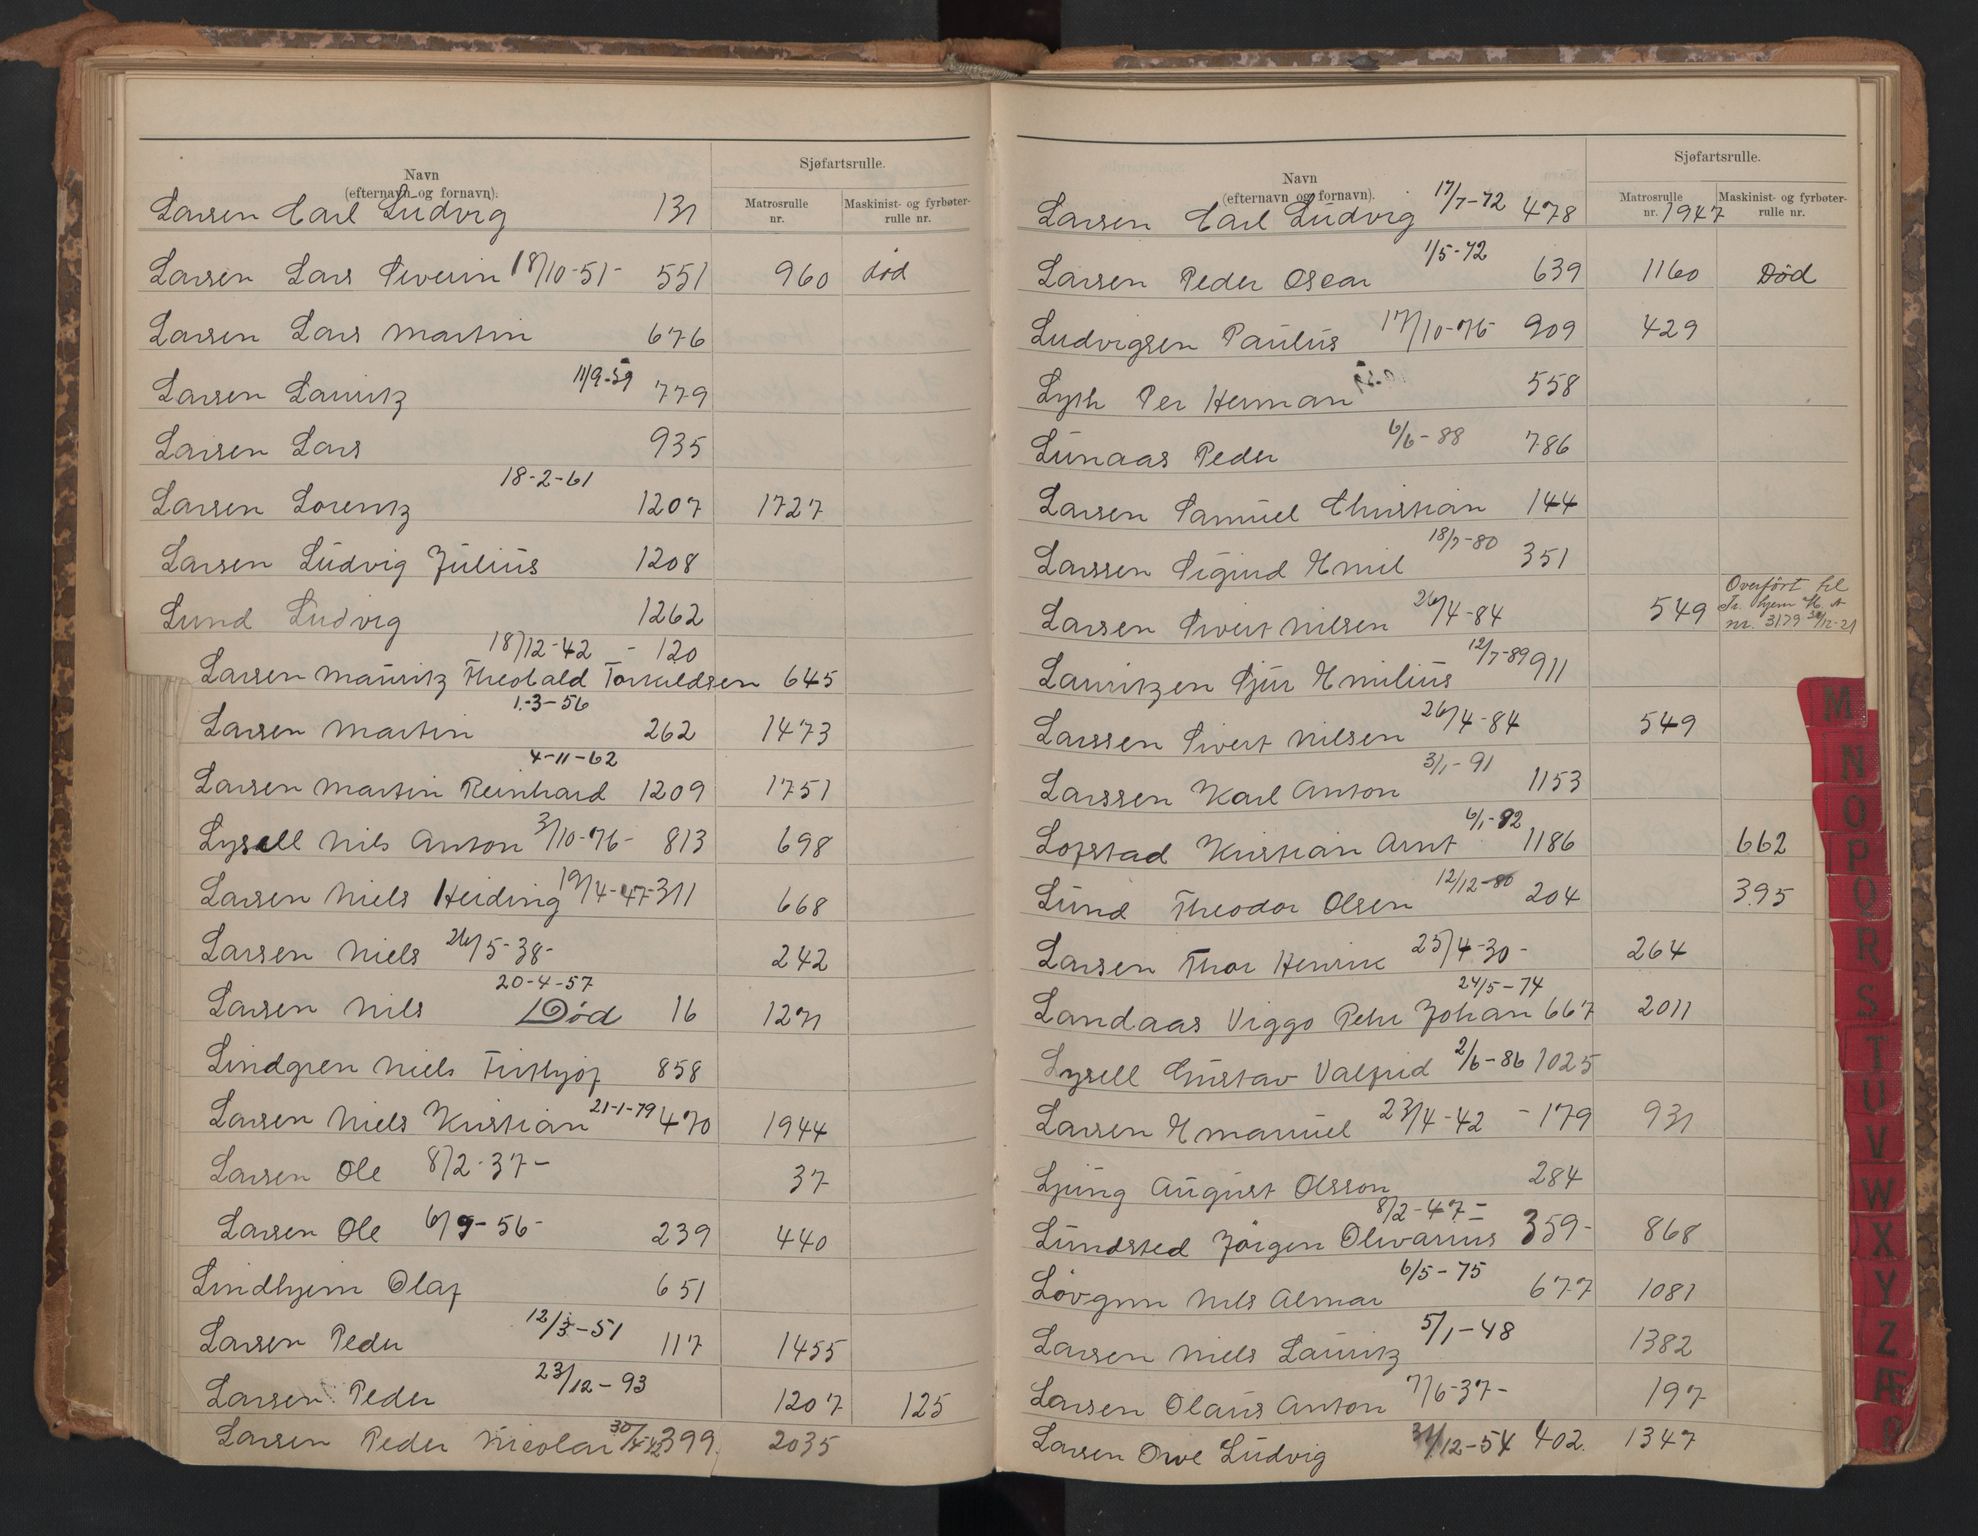 Navn
(efternavn og fornavn).
Sjøfartsrulle.
Matrosrulle nr.
Maskinist- og fyrbøter-rulle nr.
Larsen Carl Ludvig 131
Larsen Lars Severin 18/10-51- 551 960 død
Larsen Lars Martin 676
Larsen Lauritz 11/9-59 779
Larsen Lars 935
Larsen Lorentz 18-2-61 1207 1727
Larsen Ludvig Julius 1208
Lund Ludvig 1262
Larsen Mauritz Theobald Torkuldsen 18/12-42 - 120 645
Larsen Martin 1.-3-56 262 1473
Larsen Martin Reinhard 4-11-62 1209 1751
Lysell Nils Anton 3/10-76- 813 698
Larsen Niels Heiding 19/4-47- 311 668
Larsen Niels 26/5-38- 242
Larsen Nils 20-4-57 Død 16 1271
Lindgren Niels Frithjof 858
Larsen Niels Kristian 21-1-79 470 1944
Larsen Ole 8/2-37- 37
Larsen Ole 6/9-56- 239 440
Lindhjem Olaf 651
Larsen Peder 12/3-51 117 1455
Larsen Peder 23/12-93 1207 125
Larsen Peder Nicolai 399 2035
Navn
(efternavn og fornavn).
Sjøfartsrulle.
Matrosrulle nr.
Maskinist- og fyrbøter-rulle nr.
Larsen Carl Ludvig 17/7-72 478 1947
Larsen Peder Oscar 1/5-72 639 1160 Død
Ludvigsen Paulus 17/10-76 909 429
Lyth Per Herman 558
Lunaas Peder 6/6-88 786
Larsen Samuel Christian 144
Larssen Sigurd Emil 18/7-80 351
Larsen Sivert Nilsen 26/4-84 549 Overført til Tr. hjem nr. 3179 /12-21
Lauritzen Sjur Emilius 12/7-89 911
Larssen Sivert Nilsen 26/4-84 549
Larssen Karl Anton 3/1-91 1153
Lofstad Kristian Arnt 6/1-82 1186 662
Lund Theodor Olsen 12/12-80 204 395
Larsen Thor Henrik 25/4-30- 264
Landaas Viggo Petr Johan 24/5-74 667 2011
Lysell Gustav Valfrid 2/6-86 1025
Larsen Emanuel 23/4-42 - 179 931
Ljung August Olsson 284
Lundsted Jörgen Olivarius 8/2-47- 359- 868
Løvgren Nils Almar 6/5-75 677 1081
Larsen Niels Lauritz 5/1-48 1382
Larsen Olaus Anton 7/6-37- 197
Larsen Owe Ludvig 31/12-54 402. 1347
M
N
O
P
Q
R
S
T
U
V
W
X
Y
Z
Æ
Ø